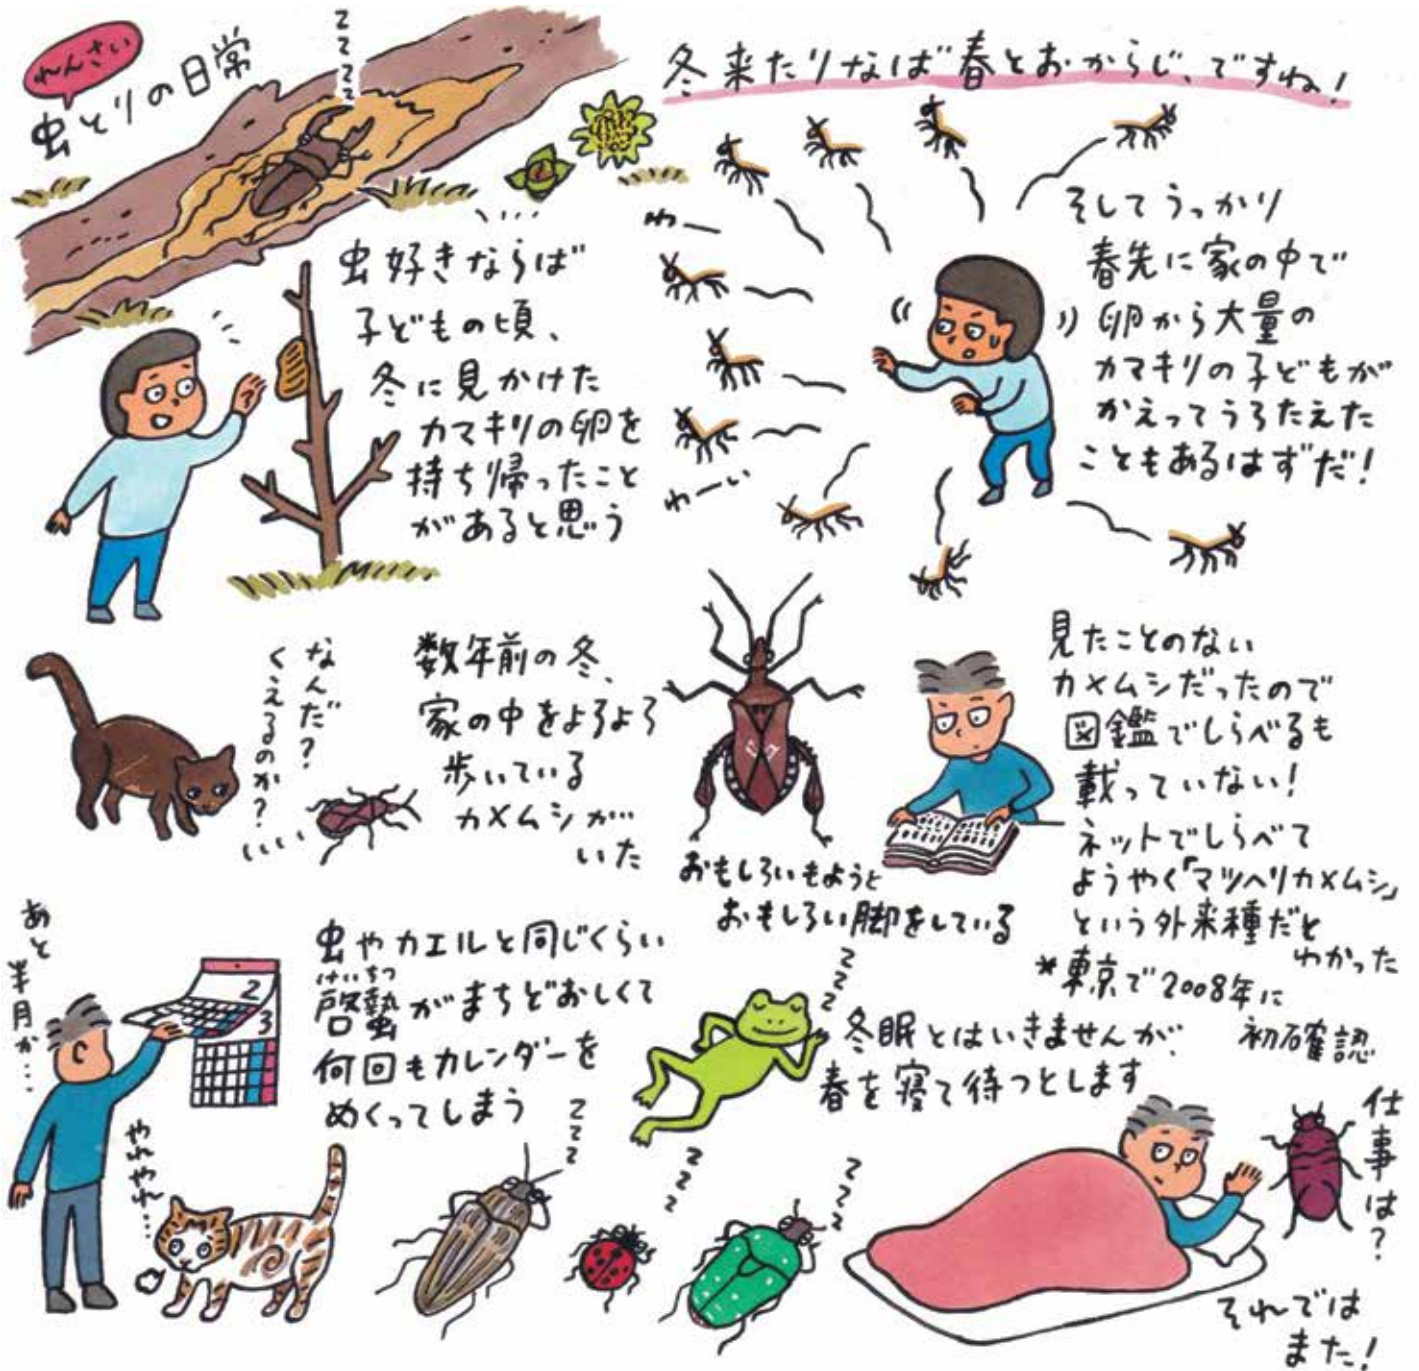 れんさい
虫とりの日常
zzzzz
冬来たりなば春とおからじ、ですね!
虫好きならば
子どもの頃、
冬に見かけた
カマキリの卵を
持ち帰ったこと
があると思う
わー
わーい
そしてうっかり
春先に家の中で
卵から大量の
カマキリの子どもが
かえってうろたえた
こともあるはずだ!
なんだ?
くえるのか?
数年前の冬、
家の中をよろよろ
歩いている
カメムシが
いた
おもしろいもようと
おもしろい脚をしている
見たことのない
カメムシだったので
図鑑でしらべるも
載っていない!
ネットでしらべて
ようやく「マツヘリカメムシ」
という外来種だと
わかった
*東京で2008年に
初確認
あと
半月か…
2
3
虫やカエルと同じくらい
けいちつ
啓蟄がまちどおしくて
何回もカレンダーを
めくってしまう
やれやれ…
zzzz
冬眠とはいきませんが、
春を寝て待つとします
zzzz
zzz
zzzz
仕事は?
それでは
また!